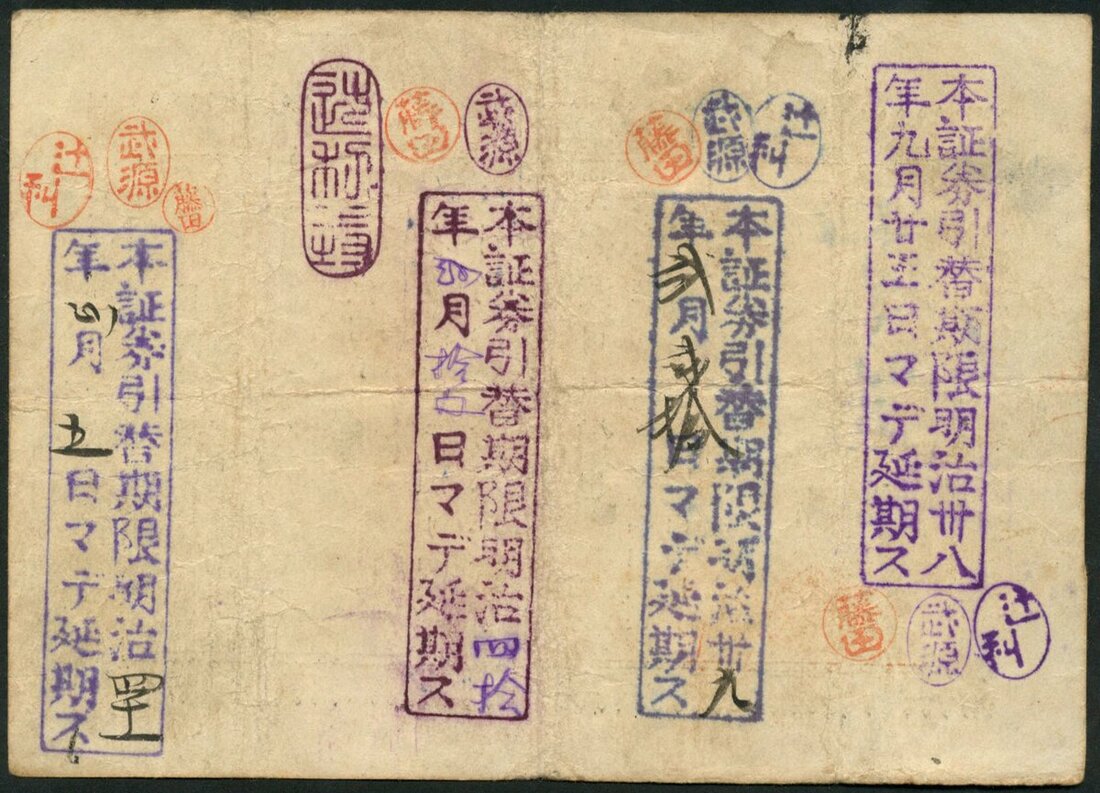 本証券引替期限明治卅八
年九月廿五日マデ延期ス
辻利
武源
藤田
辻利
武源
藤田
本証券引替期限明治卅九
年弐月日マデ延期ス
武源
藤田
本証券引替期限明治四拾
年四月拾五日マデ延期ス
武源
藤田
辻利
本証券引替期限明治
年四月五日マデ延期ス